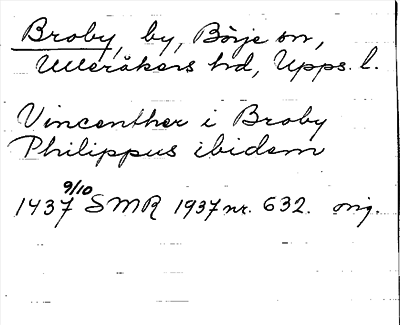 Broby, by, Börje sn,
Ulleråkers hd, Upps. l.
Vincenther i Broby
Philippus ibidem
1437 9/10 SMR 1937 nr. 632. orig.